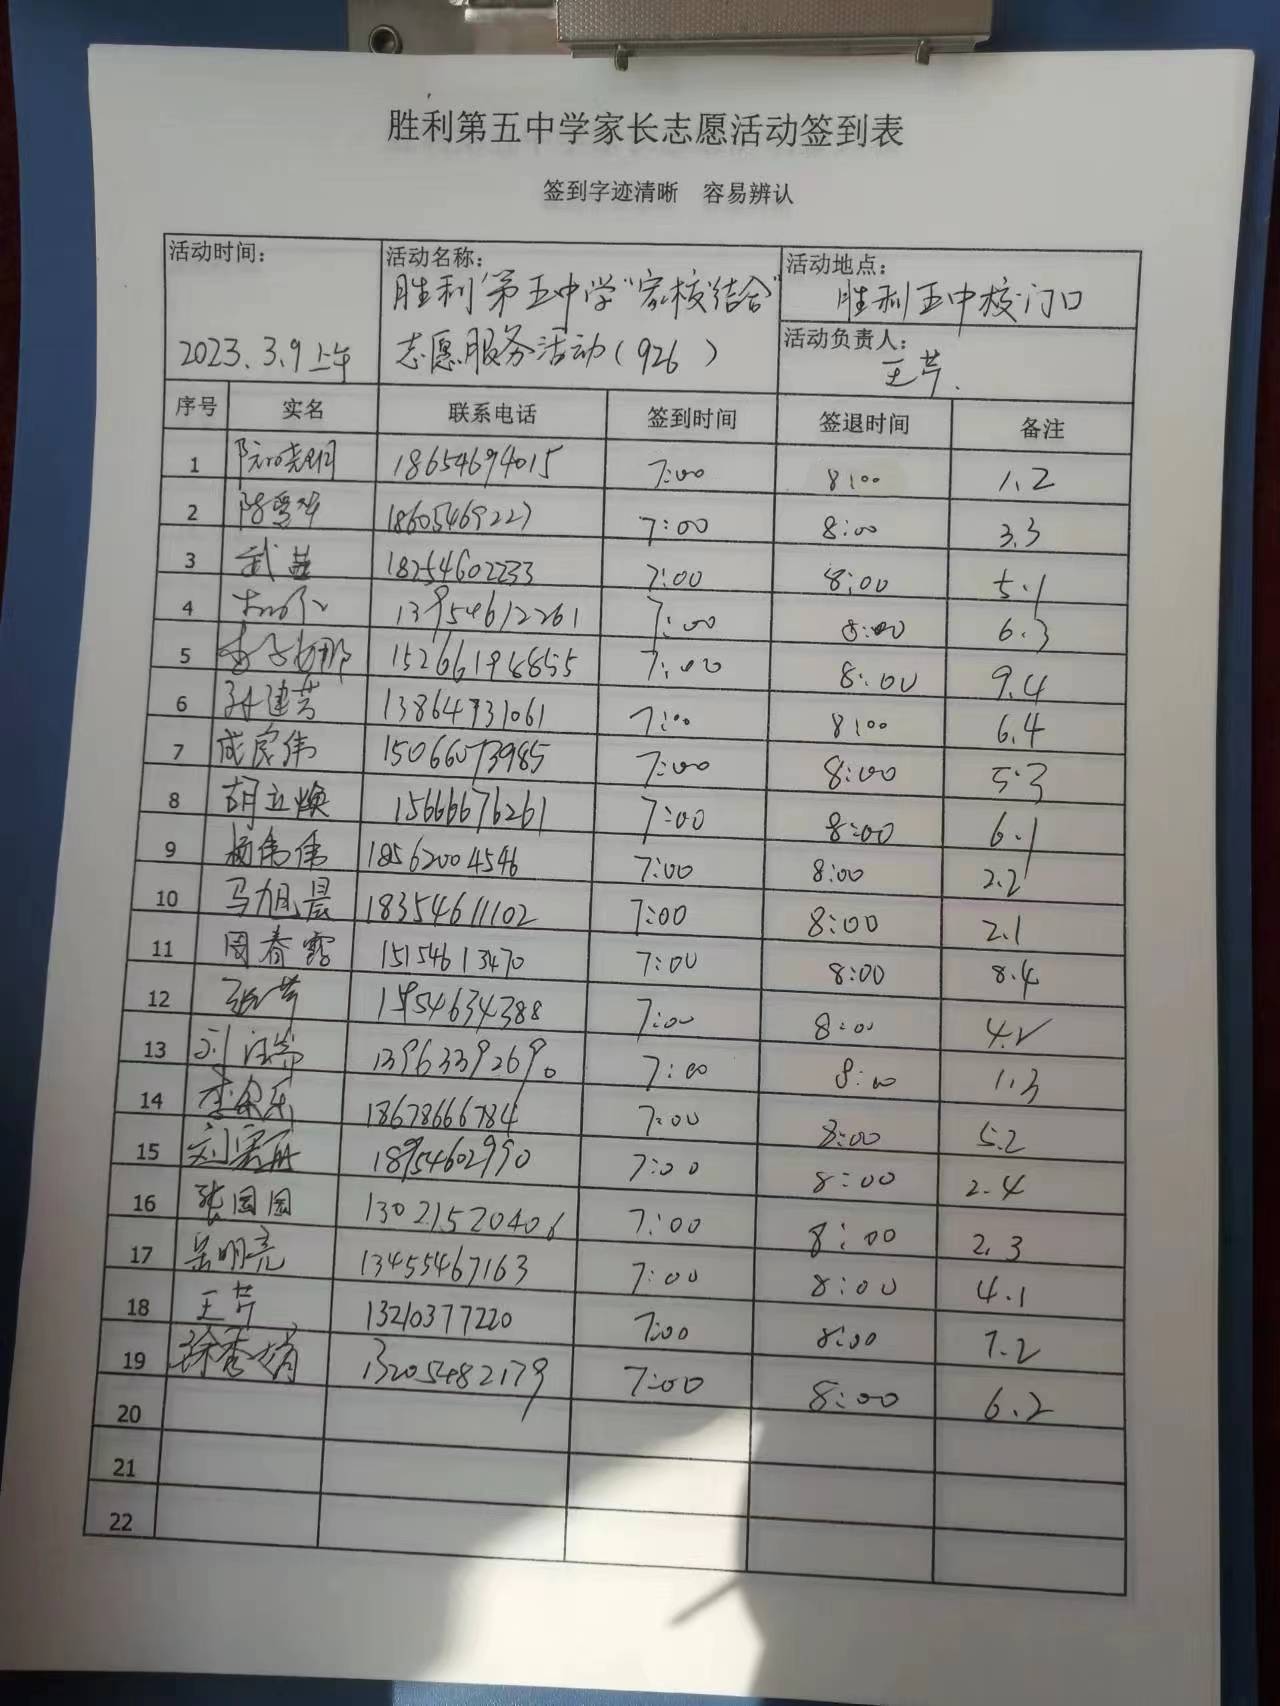 胜利第五中学家长志愿活动签到表
签到字迹清晰 容易辨认
活动时间: 2023.3.9上午
活动名称: 胜利第五中学“家校结合”
志愿服务活动(926)
活动地点: 胜利五中校门口
活动负责人: 王芹.
序号 实名 联系电话 签到时间 签退时间 备注
1 18654694015 7:00 8:00 1.2
2 陈爱华 18605469227 7:00 8:00 3.3
3 武 18254602233 7:00 8:00 5.1
4 13954612261 7:00 8:00 6.3
5 7:00 8:00 9.4
6 孙建芳 13864731061 7:00 8:00 6.4
7 成宾伟 15066073985 7:00 8:00 5.3
8 胡立焕 15666676261 7:00 8:00 6.1
9 杨伟伟 18562004546 7:00 8:00 2.2
10 马旭晨 18354611102 7:00 8:00 2.1
11 周春霞 15154613470 7:00 8:00 8.4
12 7:00 8:00 4.2
13 刘 13963392690 7:00 8:00 1.3
14 李 18678666784 7:00 8:00 5.2
15 刘 18954602990 7:00 8:00 2.4
16 张园园 13021520406 7:00 8:00 2.3
17 吴明亮 13455467163 7:00 8:00 4.1
18 王芹 13210377220 7:00 8:00 7.2
19 徐秀娟 13205482179 7:00 8:00 6.2
20
21
22